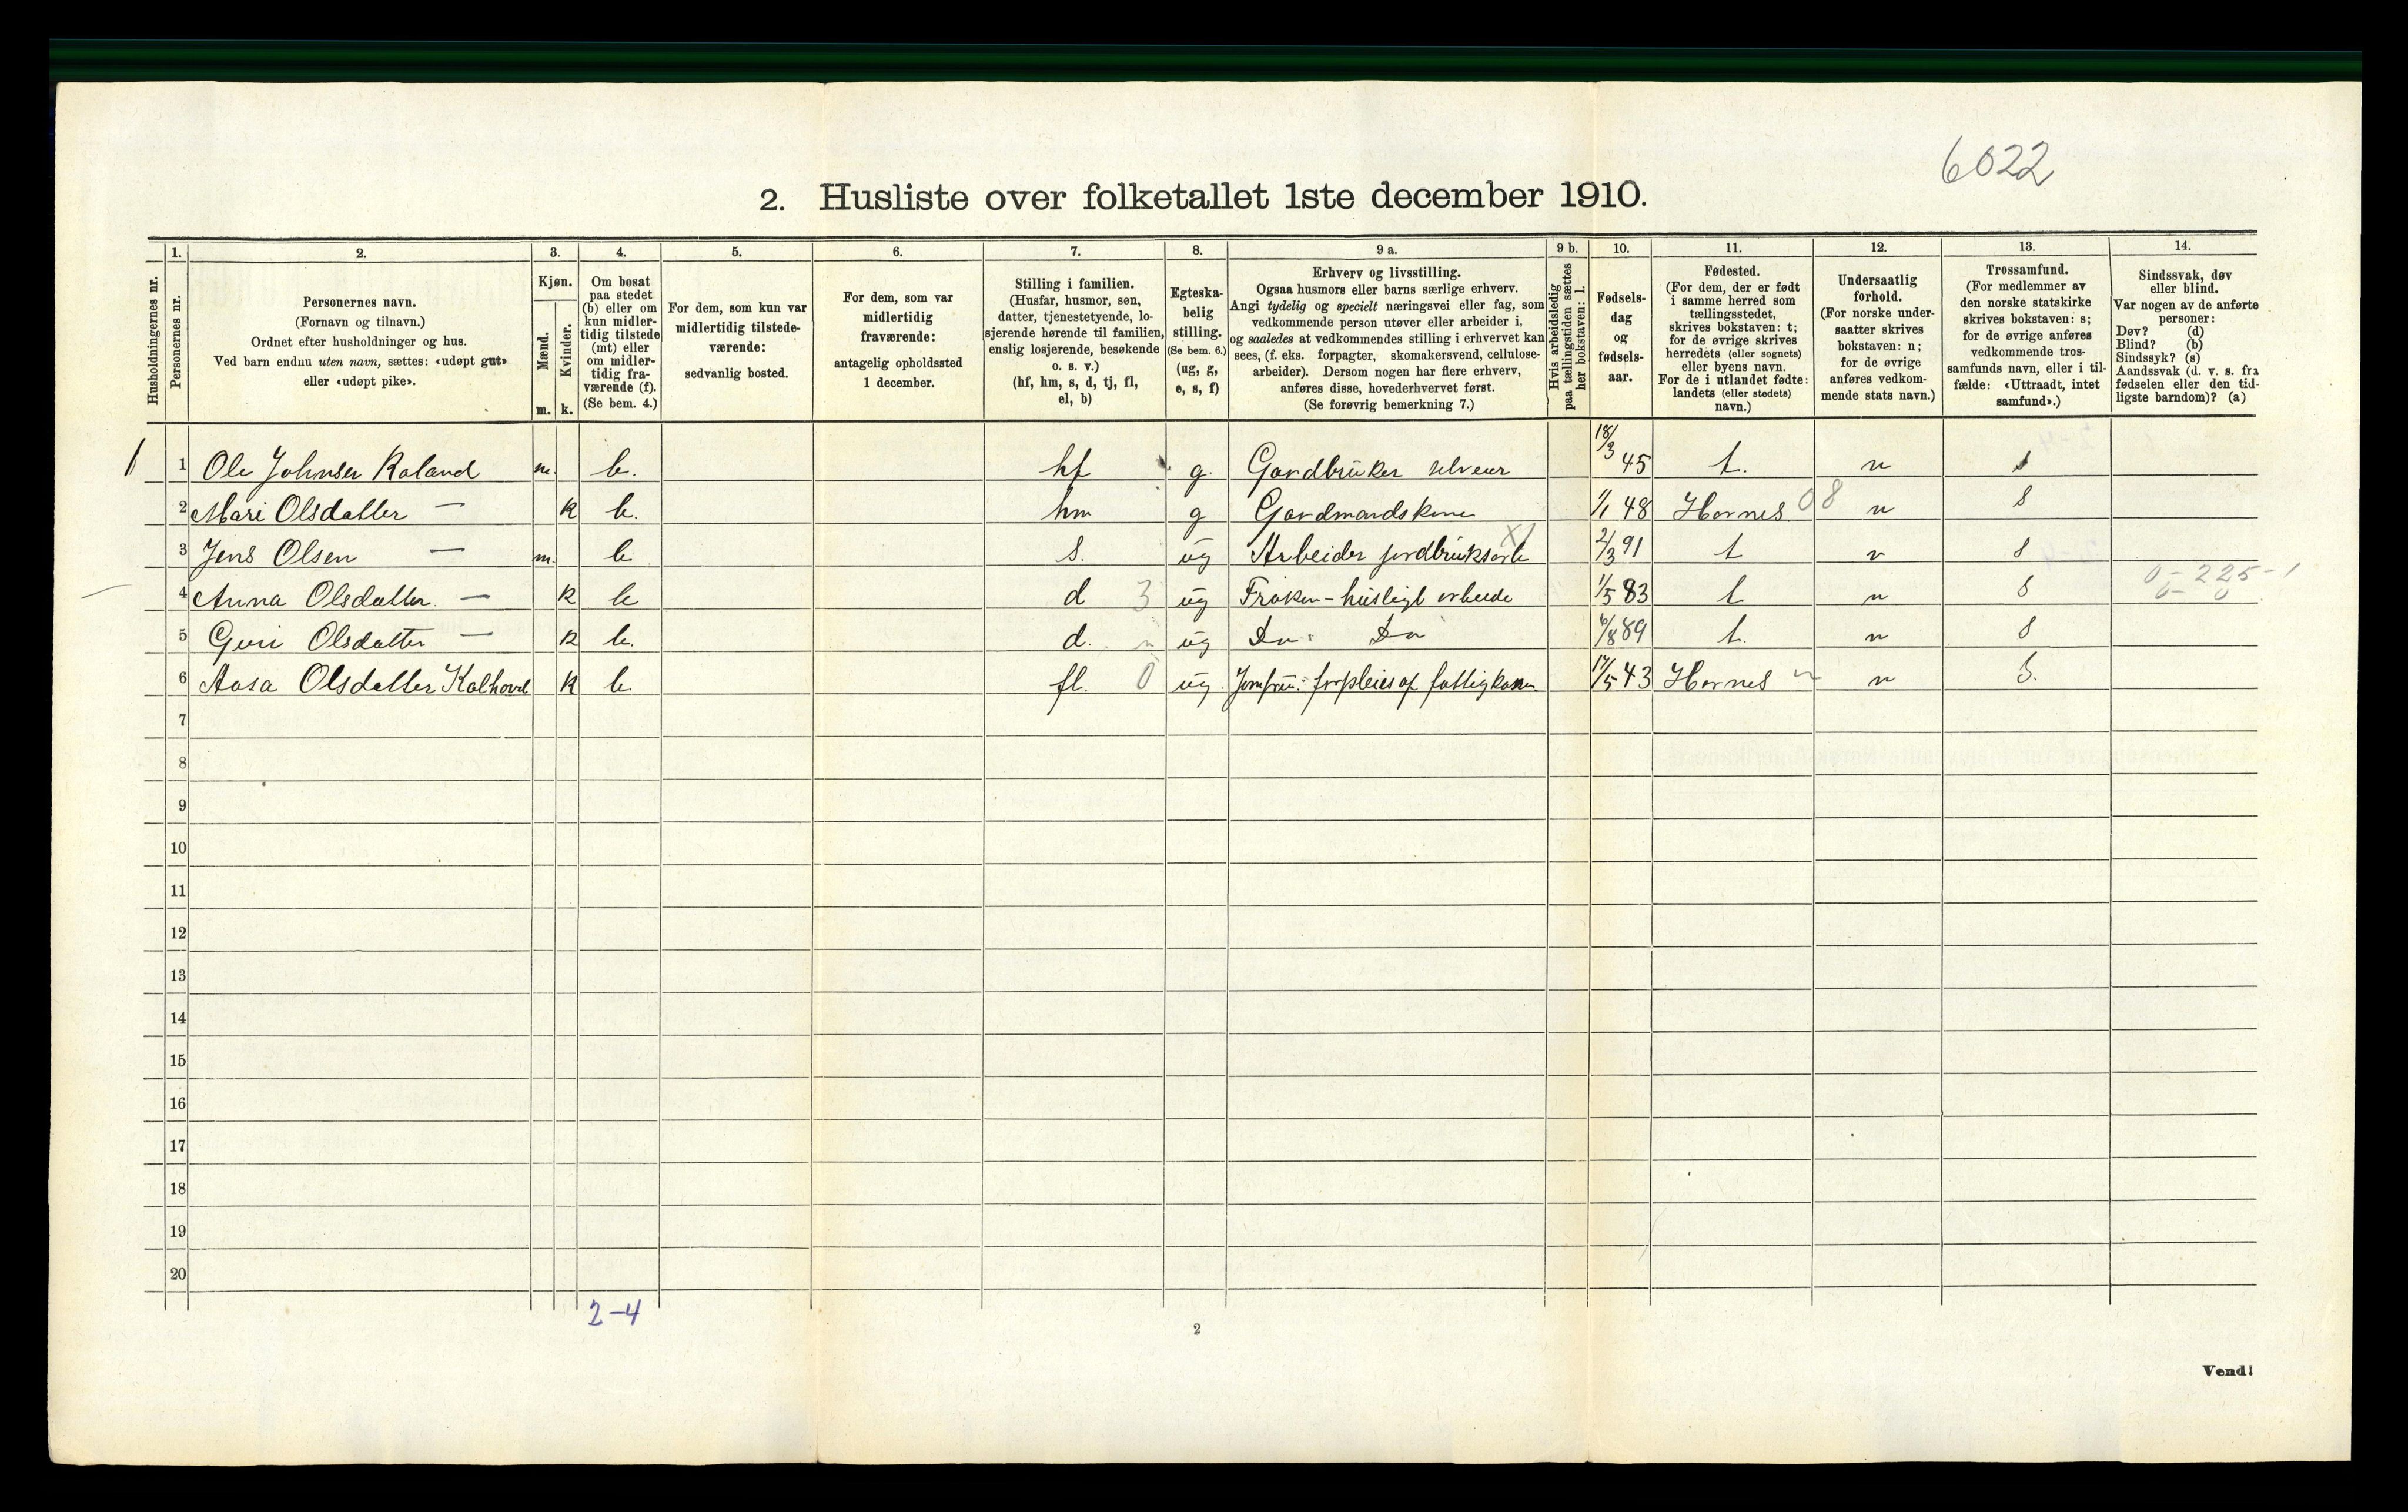 6022
2. Husliste over folketallet 1ste december 1910.
Husholdningernes nr.
1.
Personernes nr.
2.
Personernes navn.
(Fornavn og tilnavn.)
Ordnet efter husholdninger og hus.
Ved barn endnu uten navn, sættes: «udøpt gut»
eller «udøpt pike».
3.
Kjøn.
Mænd.
Kvinder.
m. k.
4.
Om bosat
paa stedet
(b) eller om
kun midler-
tidig tilstede
(mt) eller
om midler-
tidig fra-
værende (f).
(Se bem. 4.)
5.
For dem, som kun var
midlertidig tilstede-
værende:
sedvanlig bosted.
6.
For dem, som var
midlertidig
fraværende:
antagelig opholdssted
1 december.
7.
Stilling i familien.
(Husfar, husmor, søn,
datter, tjenestetyende, lo-
sjerende hørende til familien,
enslig losjerende, besøkende
o. s. v.)
(hf, hm, s, d, tj, fl,
el, b)
8.
Egteska-
belig
stilling.
(Se bem. 6.)
(ug, g,
e, s, f)
9 a.
Erhverv og livsstilling.
Ogsaa husmors eller barns særlige erhverv.
Angi tydelig og specielt næringsvei eller fag, som
vedkommende person utøver eller arbeider i,
og saaledes at vedkommendes stilling i erhvervet kan
sees, (f. eks. forpagter, skomakersvend, cellulose-
arbeider). Dersom nogen har flere erhverv,
anføres disse, hovederhvervet først.
(Se forøvrig bemerkning 7.)
9 b.
Hvis arbeidsledig
paa tællingstiden sættes
her bokstaven: l.
10.
Fødsels-
dag
og
fødsels-
aar.
11.
Fødested.
(For dem, der er født
i samme herred som
tællingsstedet,
skrives bokstaven: t;
for de øvrige skrives
herredets (eller sognets)
eller byens navn.
For de i utlandet fødte:
landets (eller stedets)
navn.)
12.
Undersaatlig
forhold.
(For norske under-
saatter skrives
bokstaven: n;
for de øvrige
anføres vedkom-
mende stats navn.)
13.
Trossamfund.
(For medlemmer av
den norske statskirke
skrives bokstaven: s;
for de øvrige anføres
vedkommende tros-
samfunds navn, eller i til-
fælde: «Uttraadt, intet
samfund».)
14.
Sindssvak, døv
eller blind.
Var nogen av de anførte
personer:
Døv? (d)
Blind? (b)
Sindssyk? (s)
Aandssvak (d. v. s. fra
fødselen eller den tid-
ligste barndom)? (a)
1 1 Ole Johnsen Roland m. b. hf g. Gardbruker selveier 18/3 45 t. n s
2 Mari Olsdatter — k b. hm g Gardmandskone 1/1 48 Hornes 08 n s
3 Jens Olsen — m. b s. ug Arbeider jordbruksarb X1 2/3 91 t n s
4 Anna Olsdatter. — k b d 3 ug Frøken - husligt arbeide 1/5 83 t n s 0 - 225 - 1
5 Guri Olsdatter — k b. d. ug Do: Do 6/8 89 t. n s
6 Aasa Olsdatter Kalhovd k b fl. 0 ug. Jomfru: forpleies af fattigkassen 17/5 43 Hornes n s.
7
8
9
10
11
12
13
14
15
16
17
18
19
20
2-4
2
Vend!